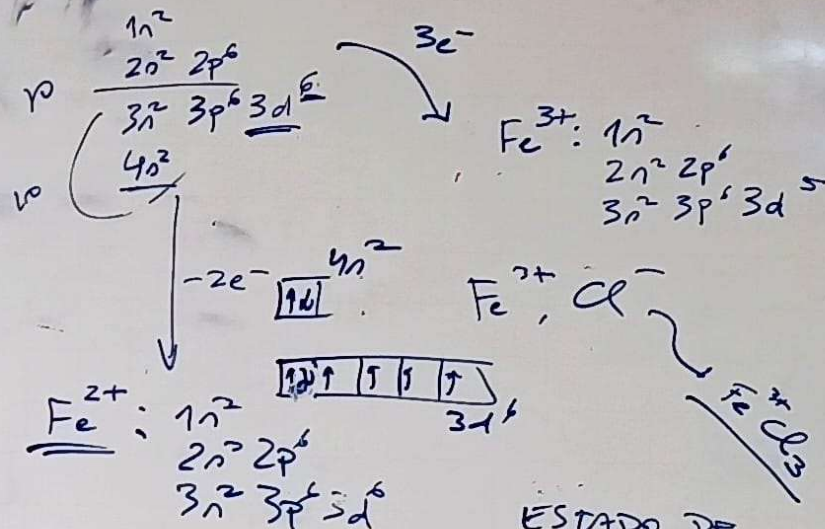 1s²
2s² 2p⁶
3s² 3p⁶ 3d⁶
4s²
3e⁻
Fe³⁺: 1s²
2s² 2p⁶
3s² 3p⁶ 3d⁵
-2e⁻
↑↓ 4s²
↑↓ ↑ ↑ ↑ ↑
3d⁶
Fe³⁺, Cl⁻
Fe³⁺Cl₃
Fe²⁺: 1s²
2s² 2p⁶
3s² 3p⁶ 3d⁶
ESTADO DE